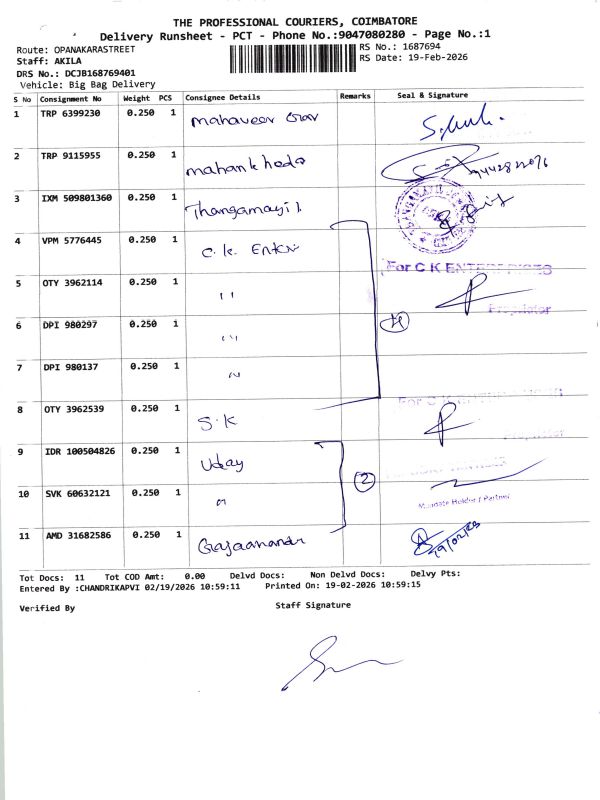 THE PROFESSIONAL COURIERS, COIMBATORE
Delivery Runsheet - PCT - Phone No.:9047080280 - Page No.:1
Route: OPANAKARASTREET
RS No.: 1687694
Staff: AKILA
RS Date: 19-Feb-2026
DRS No.: DCJB168769401
Vehicle: Big Bag Delivery
S No Consignment No Weight PCS Consignee Details Remarks Seal & Signature
1 TRP 6399230 0.250 1 mahaveer
2 TRP 9115955 0.250 1
3 IXM 509801360 0.250 1 Thangamayil
4 VPM 5776445 0.250 1 C. K.
For C K ENTERPRISES
5 OTY 3962114 0.250 1 "
Proprietor
6 DPI 980297 0.250 1 " 4
7 DPI 980137 0.250 1 "
For C K
8 OTY 3962539 0.250 1 S.K
Proprietor
9 IDR 100504826 0.250 1 Uday
10 SVK 60632121 0.250 1 " 2
Mandate Holder / Partner
11 AMD 31682586 0.250 1 Gajaanandr 19/02/26
Tot Docs: 11 Tot COD Amt: 0.00 Delvd Docs: Non Delvd Docs: Delvy Pts:
Entered By :CHANDRIKAPVI 02/19/2026 10:59:11 Printed On: 19-02-2026 10:59:15
Verified By Staff Signature